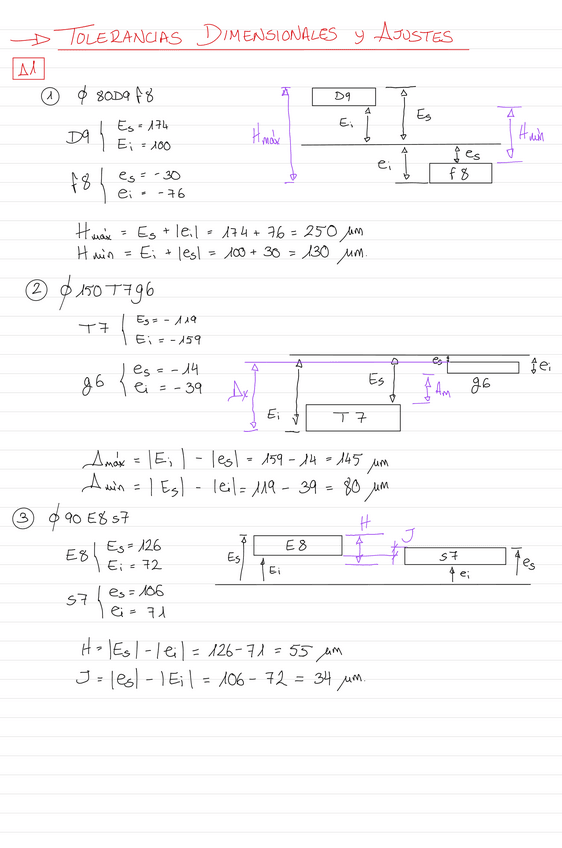 → TOLERANCIAS DIMENSIONALES y AJUSTES
Δ1
① ϕ 80D9 f8
D9 { Es = 174
Ei = 100
f8 { es = -30
ei = -76
D9
Ei
Es
Hmáx
Hmin
ei
es
f8
Hmáx = Es + |ei| = 174 + 76 = 250 μm
Hmin = Ei + |es| = 100 + 30 = 130 μm.
② ϕ 150T7g6
T7 { Es = -119
Ei = -159
g6 { es = -14
ei = -39
Δx
Ei
Es
T7
Am
es
g6
ei
Δmáx = |Ei| - |es| = 159 - 14 = 145 μm
Δmin = |Es| - |ei| = 119 - 39 = 80 μm
③ ϕ 90 E8 s7
E8 { Es = 126
Ei = 72
s7 { es = 106
ei = 71
Es
E8
Ei
H
J
s7
ei
es
H = |Es| - |ei| = 126 - 71 = 55 μm
J = |es| - |Ei| = 106 - 72 = 34 μm.